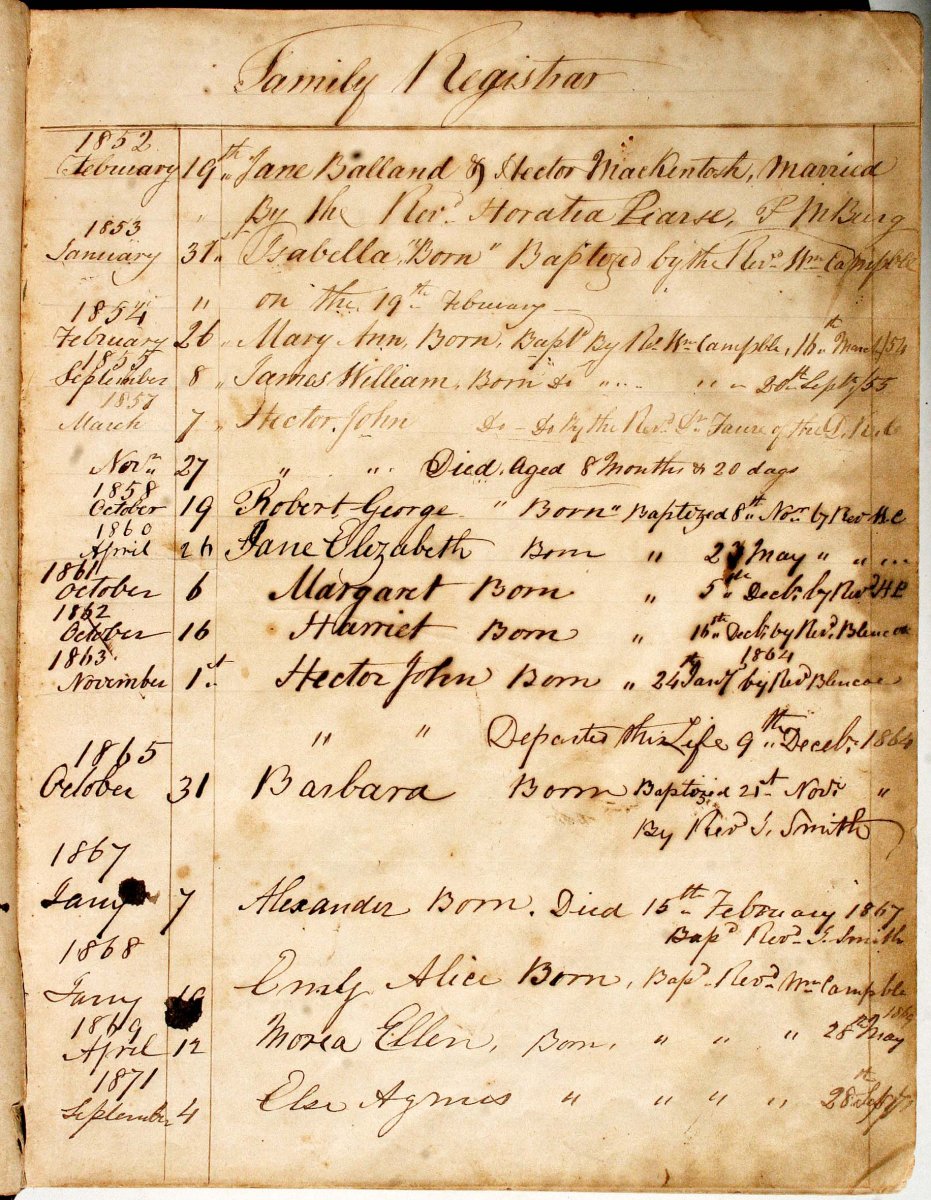 Family Registrar
1852
February 19th „ Jane Balland & Hector Mackentosh, Married
„ By the Revd. Horatia Pearse, P M Burg
1853
January 31st „ Isabella, "Born" Baptized by the Revd. Wm Campble
„ on the 19th February
1854
February 26 „ Mary Ann, Born, Bapd By Rev Wm Campble, 16th March/54
1855
September 8 „ James William, Born Do „ ... „ „ 20th Sept/55
1857
March 7 „ Hector John Do - Do By the Revd. Dr. Faure of the D.
Novr. 27 „ „ Died. Aged 8 Months & 20 days
1858
October 19 Robert George „ Born" Baptized 8th Novr by Revd H.P
1860
April 26 Jane Elizabeth Born „ 23 May „ „ ...
1861
October 6 Margaret Born „ 5th Decbr. by Revd H P
1862
October 16 Harriet Born „ 16th Decbr. by Revd. Blencoe
1863 1864
November 1st Hector John Born „ 24th Jany by Revd Blencoe
„ „ Departed this Life 9th Decebr. 1864
1865
October 31 Barbara Born Baptized 21st Novr. „
By Revd J. Smith
1867
Jany 7 Alexander Born. Died 15th February 1867
Bapd Revd. J. Smith
1868
Jany Emily Alice Born, Bapd. Revd. Wm Campble
1869 1869
April 12 Morea Ellen, Born, „ „ „ 28th May
1871
September 4 Else Agnes „ „ „ „ 28th Sep/71